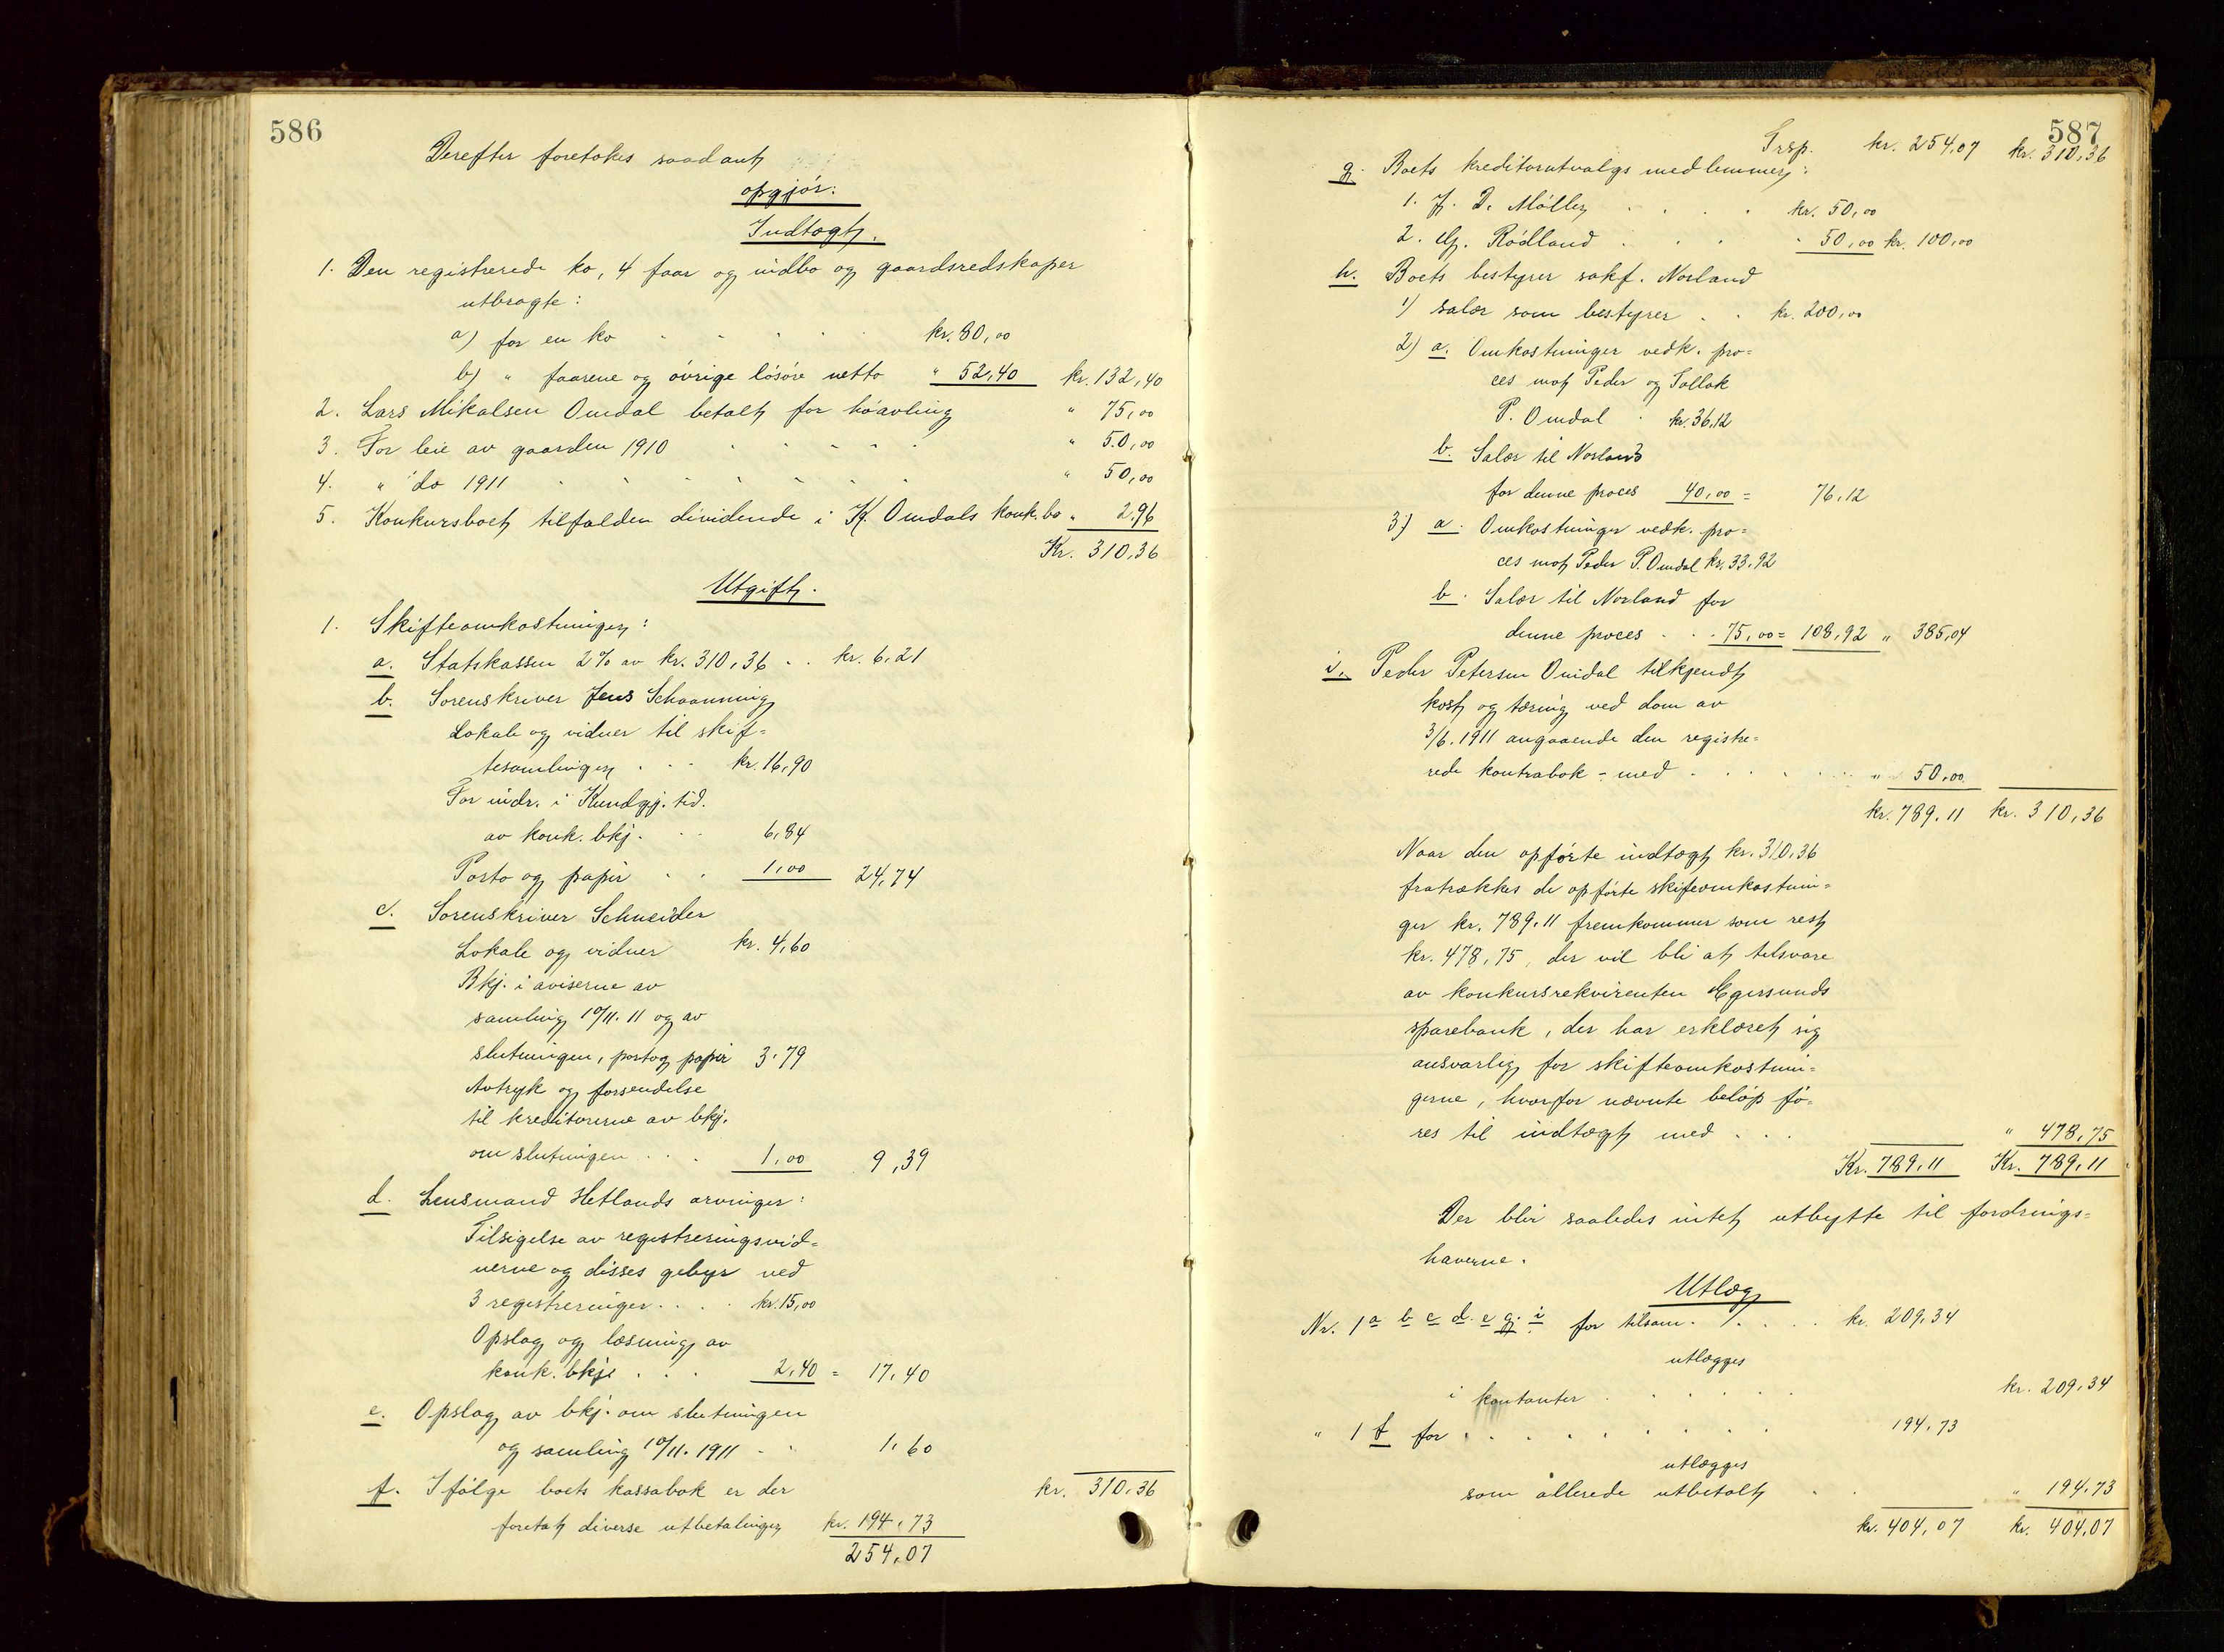 586
Derefter foretokes saadant
opgjør:
Indtægt.
1. Den registrerede ko, 4 faar og indbo og gaardsredskaper
utbragte:
a) for en ko . . . . . kr. 80,00
b) " faarene og øvrige løsøre netto " 52,40 kr. 132,40
2. Lars Mikalsen Omdal betalt for høavling " 75,00
3. For leie av gaarden 1910 . . . . . " 50,00
4. " do 1911 . . . . . . " 50,00
5. Konkursboet tilfalden dividende i K. Omdals konk.bo " 2.96
Kr. 310,36
Utgift.
1. Skifteomkostninger:
a. Statskassen 2% av kr. 310,36 . . kr. 6,21
b. Sorenskriver Jens Schaanning
Lokale og vidner til skif=
tesamlingen . . . kr. 16,90
For indr. i Kundgj. tid.
av konk. bkj. . . 6,84
Porto og papir . . 1,00 24,74
c. Sorenskriver Schneider
Lokale og vidner kr. 4,60
Bkj. i aviserne av
samling 10/11. 11 og av
slutningen, porto og papir 3,79
Avtryk og forsendelse
til kreditorerne av bkj.
om slutningen . . . 1,00 9,39
d. Lensmand Hetlands arvinger:
Tilsigelse av registreringsvid=
nerne og disses gebyr ved
3 registreringer . . . . kr. 15,00
Opslag og læsning av
konk. bkje . . . 2,40 = 17,40
e. Opslag av bkj. om slutningen
og samling 10/11. 1911 . . 1,60
f. Ifølge boets kassabok er der kr. 310,36
foretat diverse utbetalinger kr. 194,73
254,07
587
Trsp. kr. 254,07 kr. 310,36
g. Boets kreditorutvalgs medlemmer:
1. J. D. Møller . . . . kr. 50,00
2. Rødland . . . " 50,00 kr. 100,00
h. Boets bestyrer sakf. Norland
1) salær som bestyrer . . kr. 200,00
2) a. Omkostninger vedk. pro=
ces mot Peder og Tollak
P. Omdal . kr. 36,12
b. Salær til Norland
for denne proces 40,00 = 76,12
3) a. Omkostninger vedk. pro=
ces mot Peder P. Omdal kr. 33,92
b. Salær til Norland for
denne proces . . . 75,00 = 108,92 " 385,04
i. Peder Petersen Omdal tilkjendt
kost og tæring ved dom av
3/6. 1911 angaaende den registre=
rede kontrabok - med . . . . . " 50,00
kr. 789,11 kr. 310,36
Naar den opførte indtægt kr. 310,36
fratrækkes de opførte skifteomkostnin=
ger kr. 789,11 fremkommer som rest
kr. 478,75, der vil bli at tilsvare
av konkursrekvirenten Egersunds
sparebank, der har erklæret sig
ansvarlig for skifteomkostnin=
gerne, hvorfor nævnte beløp fø=
res til indtægt med . . . " 478,75
Kr. 789,11 Kr. 789,11
Der blir saaledes intet utbytte til fordrings=
haverne.
Utlæg
Nr. 1 a b c d. e g. i for tilsam. . . . . kr. 209,34
utlægges
i kontanter . . . . . . kr. 209,34
" 1 f for . . . . . . . . 194,73
utlægges
som allerede utbetalt . . " 194,73
kr. 404,07 kr. 404,07